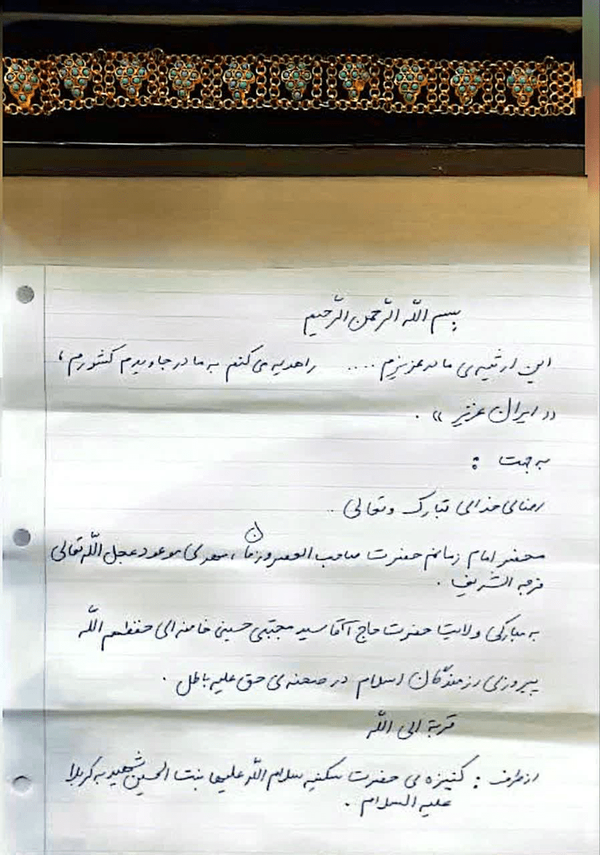 بسم الله الرحمن الرحیم
این ارثیه‌ی مادر عزیزم .... را هدیه می‌کنم به مادر جاویدم کشورم ،
«ایران عزیز» .
به جهت :
رضای خدای تبارک و تعالی ..
محضر امام زمانم حضرت صاحب العصر و زمان ، مهدی موعود عجل الله تعالی
فرجه الشریف .
به مبارکی ولایت حضرت حاج آقا سید مجتبی حسینی خامنه‌ای حفظهم الله
پیروزی رزمندگان اسلام در صحنه‌ی حق علیه باطل .
قربة الی الله
از طرف : کنیزه‌ی حضرت سکینه سلام الله علیها بنت الحسین شهید به کربلا
علیه السلام .